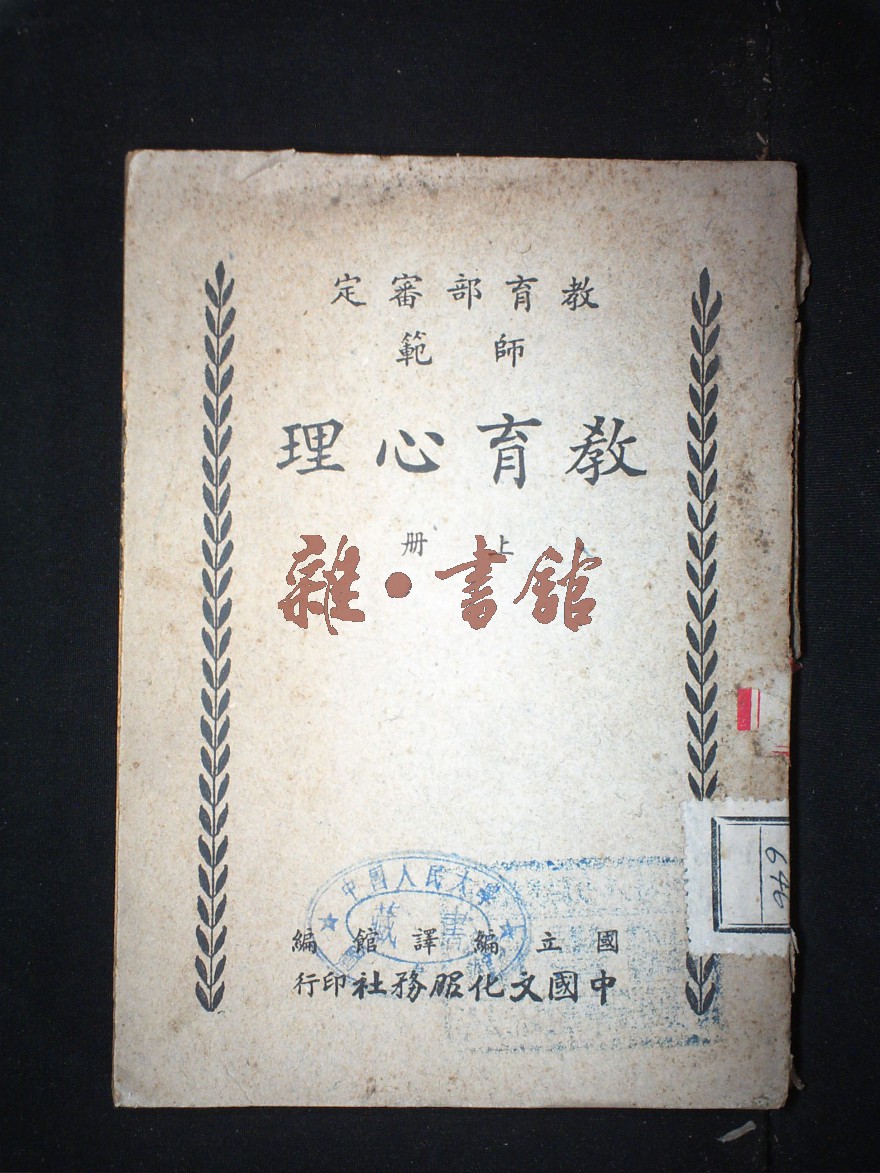 教育部審定
師範
教育心理
上册
雜·書館
中國人民大學
藏書
國立編譯館編
中國文化服務社印行
646